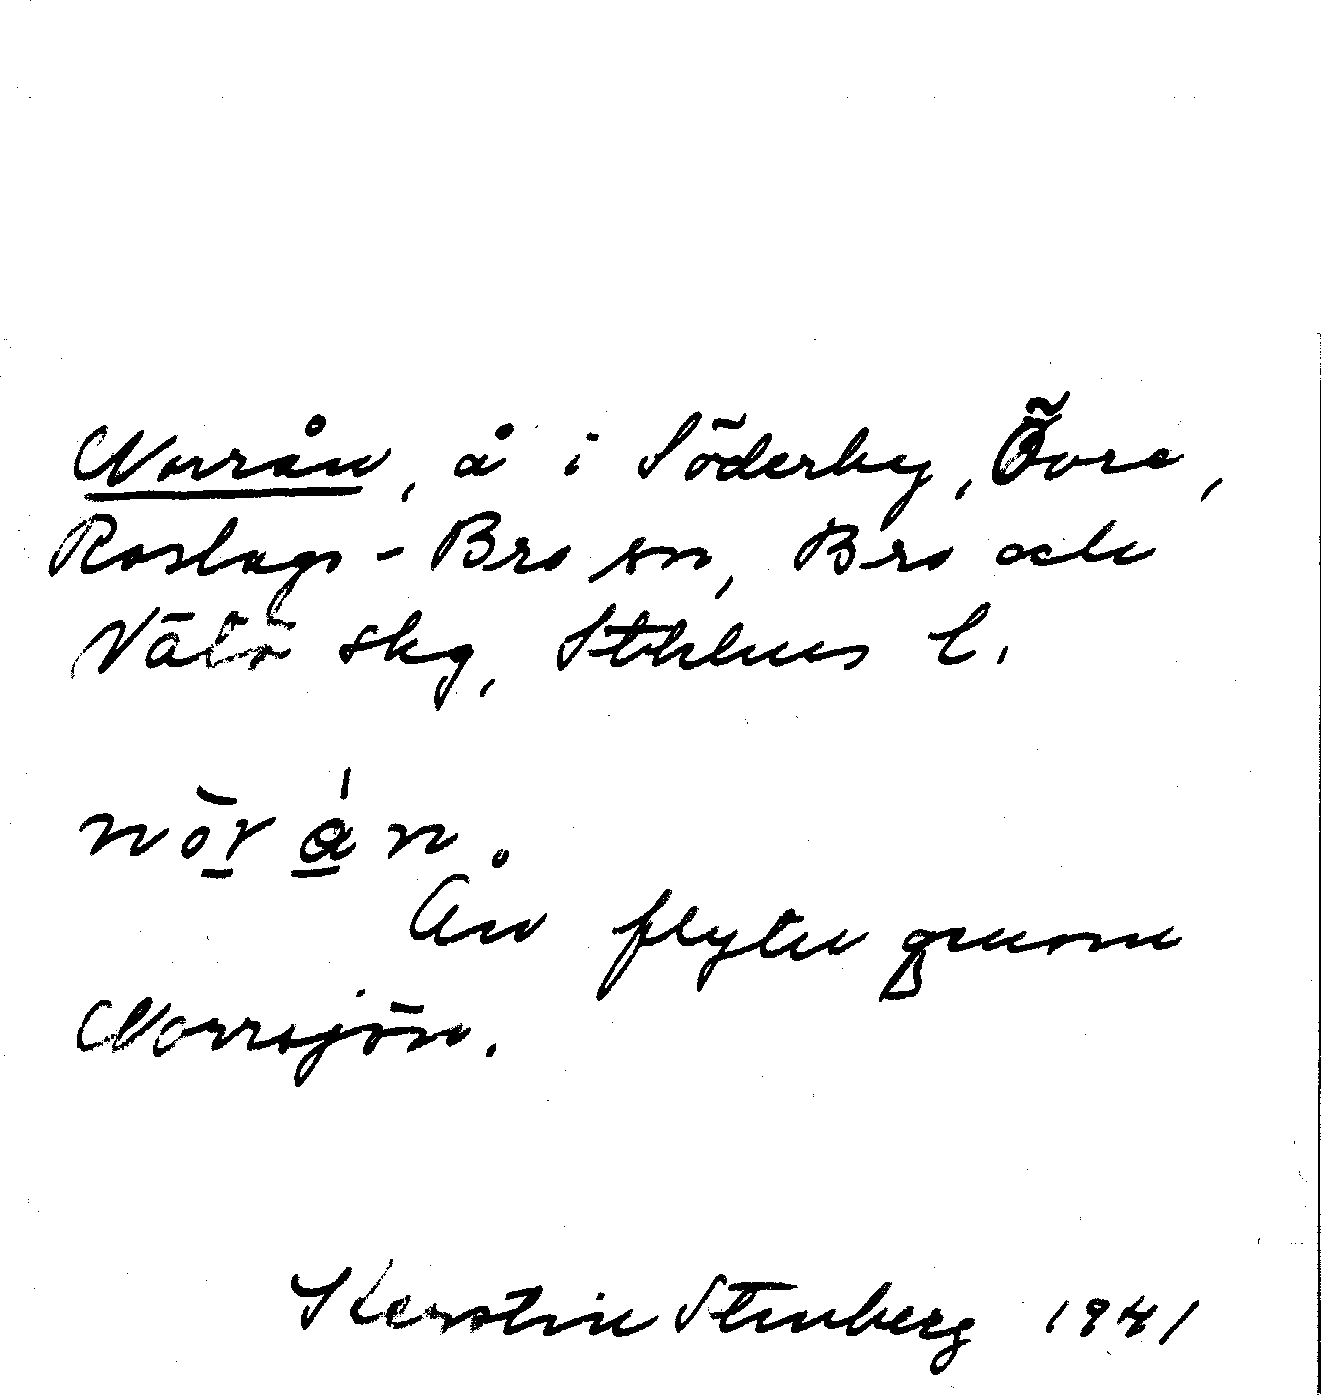 Norrån, å i Söderby, Övre,
Roslags-Bro sn, Bro och
Vätö skg, Sthlms l.
nòrǻn.
Ån flyter genom
Norrsjön.
Kerstin Stenberg 1941